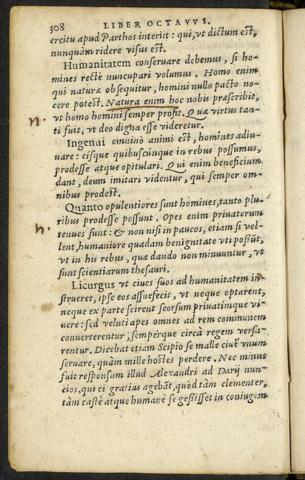 308 LIBER OCTAVVS.
ercitu apud Parthos interiit: qui, vt dictum est,
nunquàm ridere visus est.
Humanitatem conseruare debemus, si ho-
mines rectè nuncupari volumus. Homo enim
qui naturæ obsequitur, homini nullo pacto no-
cere potest. Natura enim hoc nobis præscribit,
n. vt homo homini semper profit. Quæ virtus tan-
ti fuit, vt deo digna esse videretur.
Ingenui omnino animi est, homines adiu-
uare: eisque quibuscunque in rebus possumus,
prodesse atque opitulari. Qui enim beneficium
dant, deum imitari videntur, qui semper om-
nibus prodest.
Quanto opulentiores sunt homines, tanto plu-
ribus prodesse possunt. Opes enim priuatorum
n. tenues sunt: & non nisi in paucos, etiam si vel-
lent, humaniore quadam benignitate vti possūt,
vt in his rebus, quæ dando non minuuntur, vt
sunt scientiarum thesauri.
Licurgus vt ciues suos ad humanitatem in-
strueret, ipse eos assuefecit, vt neque optarent,
neque ex parte scirent seorsum priuatimque vi-
uere: sed veluti apes omnes ad rem communem
conuerterentur, sempérque circà regem versa-
rentur. Dicebat etiam Scipio se malle ciuē vnum
seruare, quàm mille hostes perdere. Nec minus
fuit responsum illud Alexandri ad Darij nun-
cios, qui ei gratias agebāt, quòd tàm clementer,
tàm castè atque humanè se gessisset in coniugem